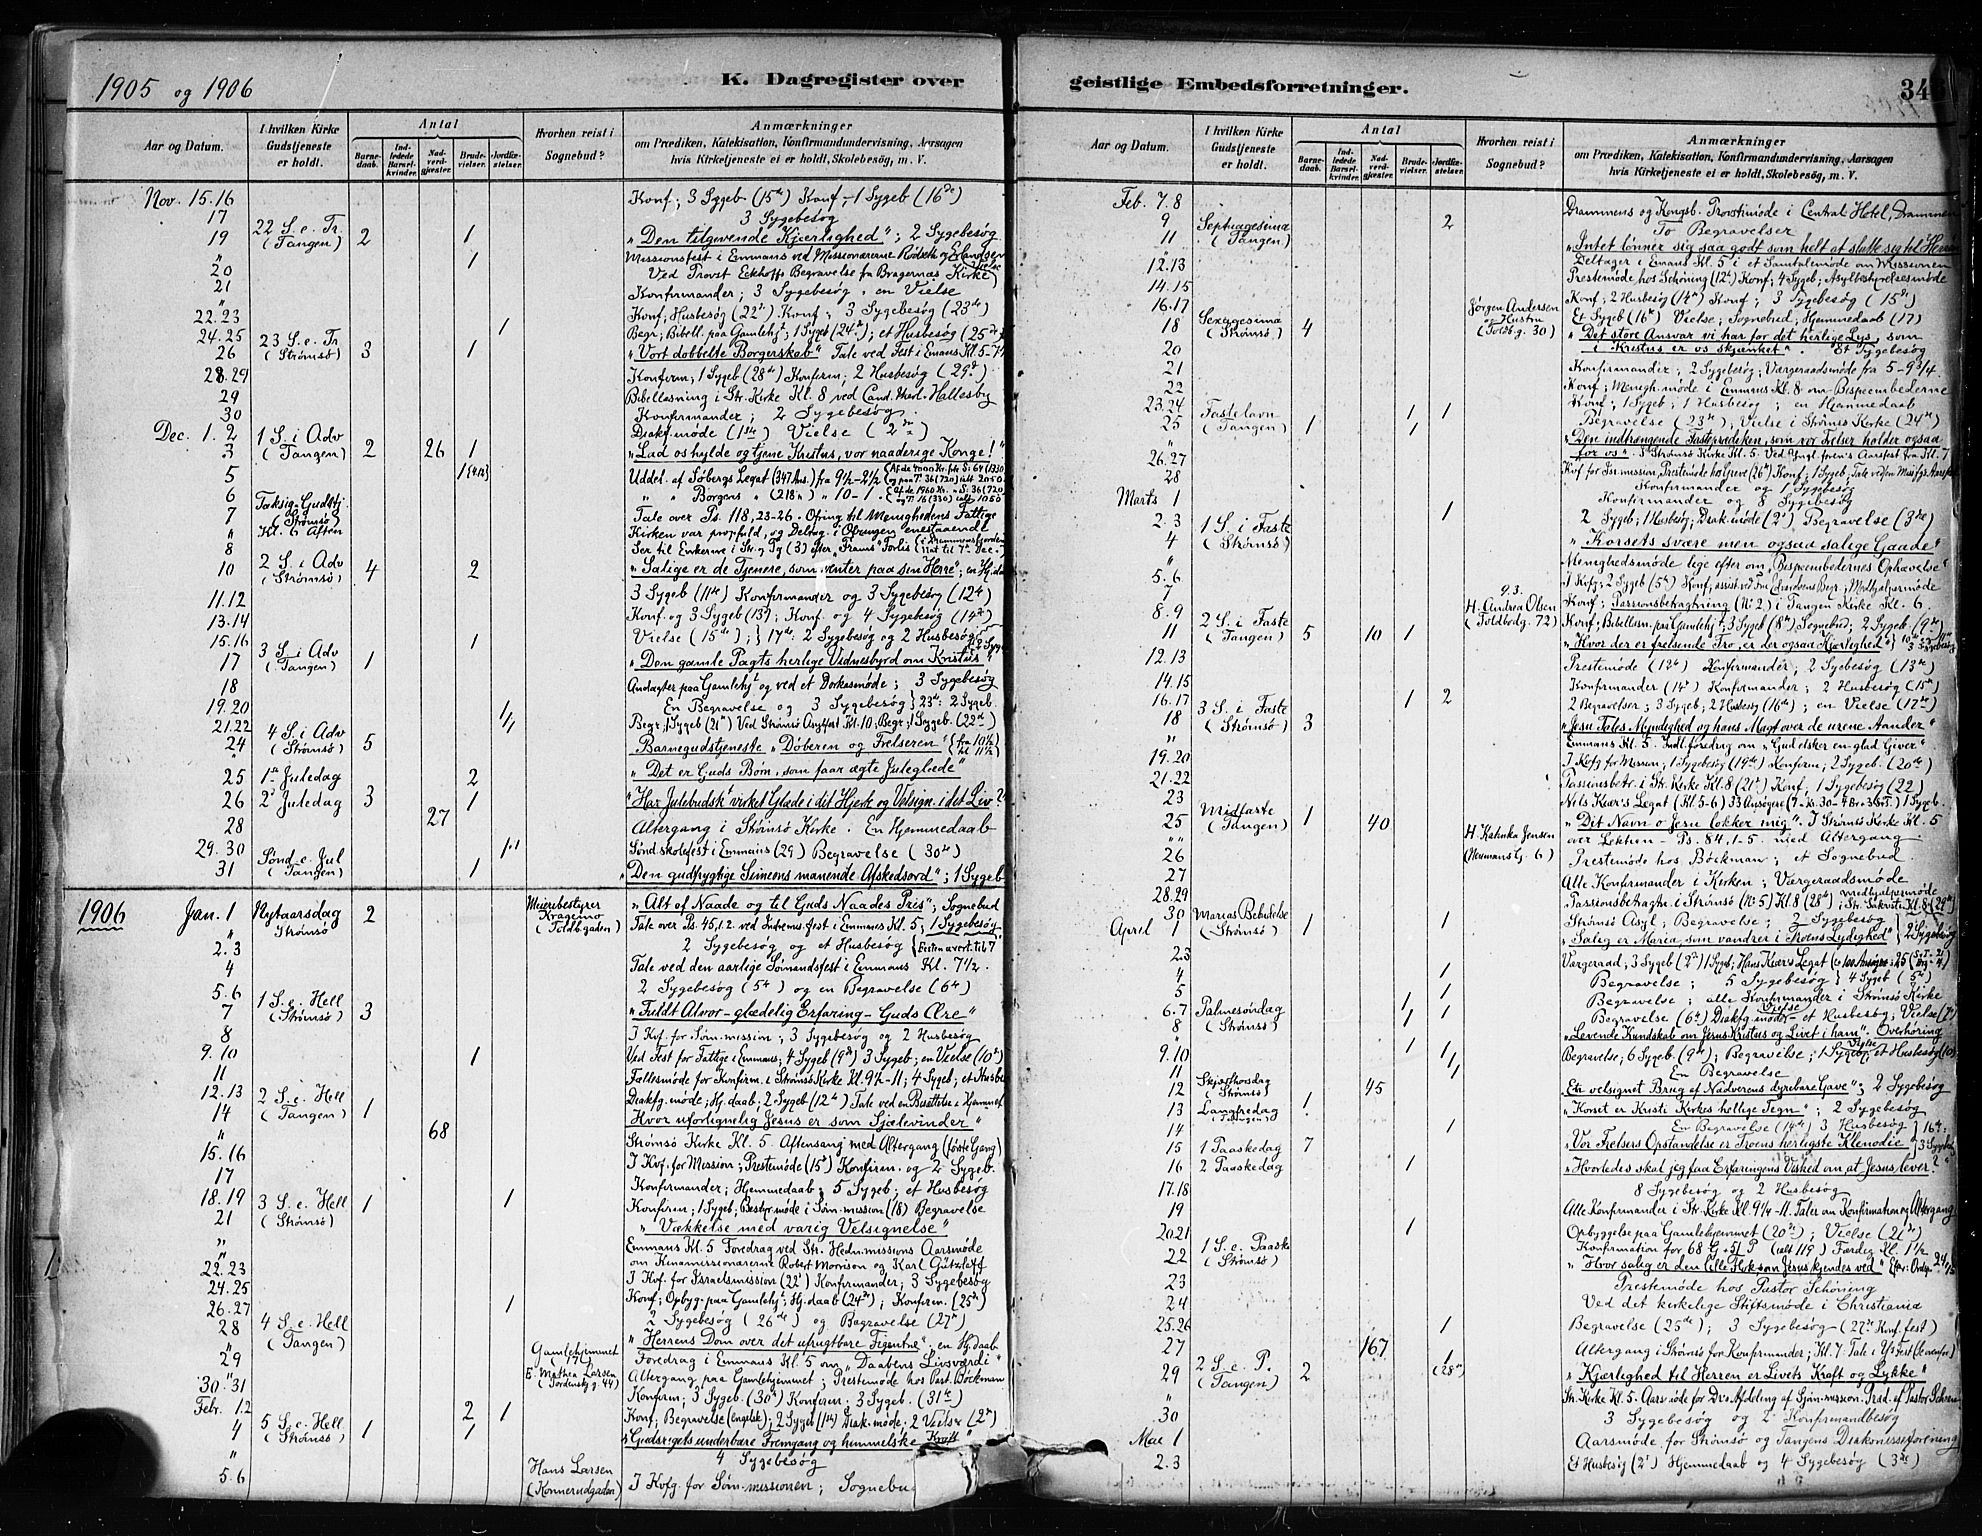 1905 og 1906
K. Dagregister over
Aar og Datum.
I hvilken Kirke Gudstjeneste er holdt.
Antal
Barnedaab.
Indledede Barselkvinder.
Nadvergjæster.
Brudevielser.
Jordfæstelser.
Hvorhen reist i Sognebud?
Anmærkninger
om Prædiken, Katekisation, Konfirmandundervisning, Aarsagen
hvis Kirketjeneste ei er holdt, Skolebesøg, m. V.
Nov. 15.16 Konf; 3 Sygeb (15de) Konf - 1 Sygeb (16de)
17 3 Sygebesøg
19 22 S. e. Tr. (Tangen) 2 1 "Den tilgivende Kjærlighed"; 2 Sygebesøg
" 1 Missionsfest i Emmaus ved Missionærerne Rødseth og Erlandsen
20 Ved Provst Eckhoffs Begravelse fra Bragernas Kirke
21 Konfirmander; 3 Sygebesøg, en Vielse
22.23 Konf; Husbesøg (22de) Konf; 3 Sygebesøg (23de)
24.25 1 Begr; Bibell. paa Gamlehjt; 1 Sygeb (24de); et Husbesøg (25de)
26 23 S. e. Tr (Strømsø) 3 1 "Vort dobbelte Borgerskab" Tale ved Fest i Emaus Kl. 5-7½
28.29 Konfirm; 1 Sygeb (28de) Konfirm; 2 Husbesøg (29de)
29 Bibellæsning i Str. Kirke Kl. 8 ved Cand. theol. Hallesby
30 Konfirmander; 2 Sygebesøg.
Dec. 1. 2 Diakf. møde (1ste) Vielse (2den)
3 1 S. i Adv (Tangen) 2 26 1 "Lad os hylde og tjene Kristus, vor naaderige Konge!"
5 Uddel. af Søbergs Legat (347 Ans.) fra 9½-2½
6 " " Borgens " (218 ") " 10-1.
7 Taksig. Gudstj. (Strømsø) Tale over Ps. 118, 23-26. Ofring til Menighedens Fattige
" Kl. 6 Aften Kirken var propfuld, og Deltag. i Ofringen enestaaende
8 Ser til Enkerne i Str. og Tg (3) efter "Frams" Forlis
10 2 S. i Adv (Strømsø) 4 2 "Salige er de Tjenere, som venter paa sin Herre"; en Hj.daab
11.12 3 Sygeb (11te) Konfirmander og 3 Sygebesøg (12te)
13.14 Konf og 3 Sygeb (13de); Konf. og 4 Sygebesøg (14de)
15.16 1 Vielse (15de); 17de: 2 Sygebesøg og 2 Husbesøg
17 3 S. i Adv (Tangen) 1 "Den gamle Pagts herlige Vidnesbyrd om Kristus"
18 Andagter paa Gamlehjt og ved et Dorkasmøde; 3 Sygebesøg
19.20 En Begravelse og 3 Sygebesøg 23de: 2 Sygeb.
21.22 Begr; 1 Sygeb (21de) Ved Strømsø Asylfest Kl. 10; Begr; 1 Sygeb. (22de)
24 4 S. i Adv (Strømsø) 5 Barnegudstjeneste "Døberen og Frelseren"
25 1ste Juledag 2 "Det er Guds Børn, som faar ægte Juleglæde"
26 2den Juledag 3 1 "Har Julebudsk. virket Glæde i dit Hjerte og Velsign. i det Liv?"
28 27 Altergang i Strømsø Kirke. En Hjemmedaab
29.30 1.1 Sønd.skolefest i Emmaus (29) Begravelse (30te)
31 Sønd. e. Jul (Tangen) 1 "Den gudfrygtige Simeons manende Afskedsord"; 1 Sygeb
1906 Jan. 1 Nytaarsdag Strømsø 2 Meieribestyrer Kragemo (Toldbgaden) "Alt af Naade og til Guds Naades Pris"; Sognebud
" Tale over Ps. 45,1.2. ved Indremis.fest i Emmaus Kl. 5; 1 Sygebesøg
2.3 2 Sygebesøg og et Husbesøg
4 Tale ved den aarlige Sømandsfest i Emmaus Kl. 7½.
5.6 2 Sygebesøg (5te) og en Begravelse (6te)
7 1 S. e. Hell (Strømsø) 3 "Fuldt Alvor - glædelig Erfaring - Guds Ære"
8 I Kvf. for Søm.mission; 3 Sygebesøg og 2 Husbesøg
9.10 1 Ved Fest for Fattige i Emmaus; 4 Sygeb (9de) 3 Sygeb; en Vielse (10de)
11 Fællesmøde for Konfirm. i Strømsø Kirke Kl. 9½-11; 4 Sygeb; et Husbes
12.13 Diakfg. møde; Hj. daab; 2 Sygeb (12te)
14 2 S. e. Hell (Tangen) 1 Hvor uforlignelig Jesus er som Sjælevinder"
" 68 Strømsø Kirke Kl. 5. Aftensang med Altergang (første Gang)
15.16 I Kvf. for Mission; Prestemøde (15de) Konfirm. og 2 Sygeb.
17 Konfirmander; Hjemmedaab, 5 Sygeb; et Husbesøg
18.19 1 Konfirm; 1 Sygeb; Bestyr.møde i Søm.mission (18) Begravelse
21 3 S. e. Hell (Strømsø) 1 "Vækkelse med varig Velsignelse"
" Emmaus Kl. 5 Foredrag ved Str. Hedn.missions Aarsmøde
" om Kinamissionærerne Robert Morrison og Karl Gützlaff
22.23 I Kvf. for Israelsmission (22de) Konfirmander; 3 Sygebesøg
24.25 Konf; Opbyg. paa Gamlehjt; Hj. daab (24de); Konfirm. (25de)
26.27 1 2 Sygebesøg (26de) og Begravelse (27de)
28 4 S. e. Hell (Tangen) "Herrens Dom over det ufrugtbare Figentræ", en Hj.daab
" Gamlehjemmet (17) Foredrag i Emmaus Kl. 5 om "Daabens Livsværdi"
29 E. Mathea Larsen (Tordenskg. 44) Altergang paa Gamlehjemmet; Prestemøde hos Past. Böckman
30.31 Konfirm; 3 Sygeb. (30te) Konfirm. 3 Sygeb. (31te)
Febr. 1.2 2 1 Konf; Begravelse (engelsk); 2 Sygeb (1ste) Diak. møde. 2 Vielser (2den)
4 5 S. e. Hell (Strømsø) 1 1 "Gudsrigets underbare Fremgang og himmelske Kraft"
" 4 Sygebesøg
5.6 Hans Larsen (Konnerudgaden) I Kvfg. for Søm.missionen; Sognebud
geistlige Embedsforretninger.
Aar og Datum.
I hvilken Kirke Gudstjeneste er holdt.
Antal
Barnedaab.
Indledede Barselkvinder.
Nadvergjæster.
Brudevielser.
Jordfæstelser.
Hvorhen reist i Sognebud?
Anmærkninger
om Prædiken, Katekisation, Konfirmandundervisning, Aarsagen
hvis Kirketjeneste ei er holdt, Skolebesøg, m. V.
Feb. 7.8 Drammens og Kongsb. Provstimøde i Central Hotel, Drammen
9 2 To Begravelser
11 Septuagesima (Tangen) "Intet lønner sig saa godt som helt at slutte sig til Herren
" Deltager i Emaus Kl. 5 i et Samtalemøde om Missionen
12.13 Prestemøde hos Schöning (12te) Konf; 4 Sygeb; Asylbestyrelsesmøde
14.15 Konf; 2 Husbesøg (14de) Konf; 3 Sygebesøg (15de)
16.17 Jørgen Andersen og Hustru (Toldb.g. 30) Et Sygeb (16de) Vielse; Sognebud; Hjemmedaab (17)
18 Sexagesima (Strømsø) 4 "Det store Ansvar vi har for det herlige Lys, som
i Kristus er os skjænket". Et Sygebesøg
20 Konfirmander; 2 Sygebesøg; Værgeraadsmøde fra 5-9¾
21 Konf; Menigh.møde i Emmaus Kl. 8 om Bispeembederne
22 Konf; 1 Sygeb; 1 Husbesøg; en Hjemmedaab
23.24 1 1 Begravelse (23de); Vielse i Strømsø Kirke (24de)
25 Fastelavn (Tangen) 1 1 "Den indtrængende Fasteprædiken, som vor Frelser holder ogsaa
for os". Strømsø Kirke Kl. 5. Ved Yngl.foren's Aarsfest fra Kl. 7
26.27
28 Konfirmander og 1 Sygebesøg
Marts 1 Konfirmander og 8 Sygebesøg
2.3 1 2 Sygeb; 1 Husbesøg; Diak.møde (2den) Begravelse (3die)
4 1 S. i Faste (Strømsø) "Korsets svære men ogsaa salige Gaade"
" Menighedsmøde lige efter om "Bispeembedernes Ophævelse"
5.6
7 Konf; Passionsbetragtning (No 2) i Tangen Kirke Kl. 6.
8.9 9.3. H. Andrea Olsen (Toldbodg. 72) Konf; Bibellæsn. paa Gamlehjt; 3 Sygeb (8de) Sognebud; 2 Sygeb (9de)
11 2 S. i Faste (Tangen) 5 10 1 "Hvor der er frelsende Tro, er der ogsaa Kjærlighed"
12.13 Prestemøde (12te) Konfirmander; 2 Sygebesøg (13de)
14.15 Konfirmander (14de) Konfirmander; 2 Husbesøg (15de)
16.17 1 2 2 Begravelser; 3 Sygeb; 2 Husbesg (16de); en Vielse (17de)
18 3 S. i Faste (Strømsø) 3 "Jesu Tales Myndighed og hans Magt over de urene Aander"
" Emmaus Kl. 5. Indl. foredrag om "Gud elsker en glad Giver".
19.20 I Kvfg for Mission; 1 Sygebesøg (19de) Konfirm; 2 Sygeb. (20de)
21.22 Passionsbetr. i Str. Kirke Kl. 8 (21de) Konf; 1 Sygebesøg (22)
23 Nils Kiær's Legat (Kl. 5-6) 33 Ansøgere 1 Sygeb.
25 Midfaste (Tangen) 1 40 "Dit Navn o Jesu lokker mig". I Strømsø Kirke Kl. 5
" over Løkten - Ps. 84, 1-5. med Altergang.
26 (Neumansg. 6) Prestemøde hos Böckman; et Sognebud.
27 Alle Konfirmander i Kirken; Værgeraadsmøde
28.29 Passionsbetragtn. i Strømsø (No 5) Kl. 8 (28de)
30 1 Strømsø Asyl; Begravelse; 2 Sygebesøg
April 1 Mariæ Bebudelse (Strømsø) 1 "Salig er Maria, som vandrer i Troens Lydighed"
2.3
4 1 Begravelse; 5 Sygebesøg
5 1 Begravelse; alle Konfirmander i Strømsø Kirke
6.7 1 1 Begravelse (6te) Diakfg. møder - et Husbesøg; Vielse (7de)
8 Palmesøndag (Strømsø) "Levende Kundskab om Jesus Kristus og Livet i ham". Overhøring
9.10 Begravelse; 6 Sygeb. (9de); Begravelse; 1 Sygeb; et Husbesøg (10)
11 En Begravelse
12 Skjærthorsdag (Strømsø) 45 "En velsignet Brug af Nadverens dyrebare Gave"; 2 Sygebesøg
13 Langfredag (Tangen) 1 "Korset er Kristi Kirkes hellige Tegn"; 2 Sygebesøg
14 1 En Begravelse (14de) 3 Husbesøg
15 1 Paaskedag 7 "Vor Frelsers Opstandelse er Troens herligste Klenodie"
16 2 Paaskedag 1 "Hvorledes skal jeg faa Erfaringens Vished om at Jesus lever?"
17.18 8 Sygebesøg og 2 Husbesøg
19 Alle Konfirmander i Str. Kirke Kl. 9¼-11. Taler om Konfirmation og Altergang
20.21 1 Opbyggelse paa Gamlehjemmet (20de); Vielse (21de)
22 1 S. e. Paaske (Strømsø) Konfirmation for 68 G + 51 P (ialt 119) Færdig Kl. 1½
"Hvor salig er den lille Flok som Jesus kjendes ved"
23 Prestemøde hos Pastor Schöning
24 Ved det kirkelige Stiftsmøde i Christiania
25.26 1 Begravelse (25de); 3 Sygebesøg - (27de Konf. fest)
27 167 Altergang i Strømsø for Konfirmander; Kl. 7. Tale i Ys Fest (ovenfor)
29 2 S. e. P. (Tangen) 2 1 (28de) "Kjærlighed til Herren er Livets Kraft og Lykke"
" Str. Kirke Kl. 5. Aarsmøde for Dr.s Afdeling af Sjøm.mission. Præd. af Pastor
30 3 Sygebesøg og 2 Konfirmandbesøg
Mai 1 Aarsmøde for Strømsø og Tangens Diakonisseforening
2.3 Et Husbesøg (2den) Hjemmedaab og 4 Sygebesøg (3die)